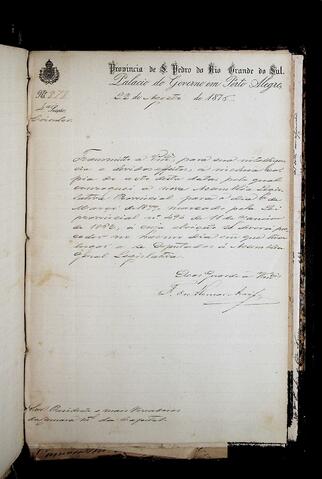 Provincia de S. Pedro do Rio Grande do Sul.
Palacio do Governo em Porto Alegre,
22 de Agosto de 1876.
Nº 878
Circular
Transmitto a Vmces, para sua intelligen
cia e devidos effeitos, a inclusa co
pia do acto desta data, pelo qual
convoquei a nova Assembléa Legis
lativa Provincial para o dia 6 de
Março de 1877, marcado pela Lei
provincial nº
de 11 de Janeiro
de
, a cuja eleição se deverá pro
ceder no mesmo dia em que tiver
lugar a de Deputados á Assembléa
Geral Legislativa.
Deos Guarde a Vmces
Snrs Presidente e mais Vereadores
da Camara Mal da Capital.